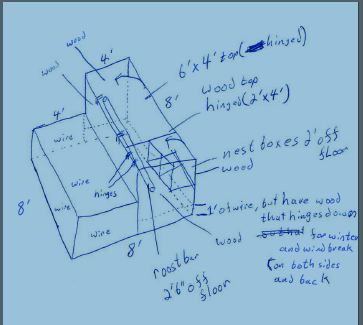 wood
4'
6'x4' top (hinged)
wood
8'
wood top
hinged (2'x4')
4'
wire
nest boxes 2' off
floor
wood
wire
hinges
wire
wire
8'
8'
wood
1' of wire, but have wood
that hinges down
so that for winter
and windbreak
on both sides
and back
roost bar
2'6" off
floor